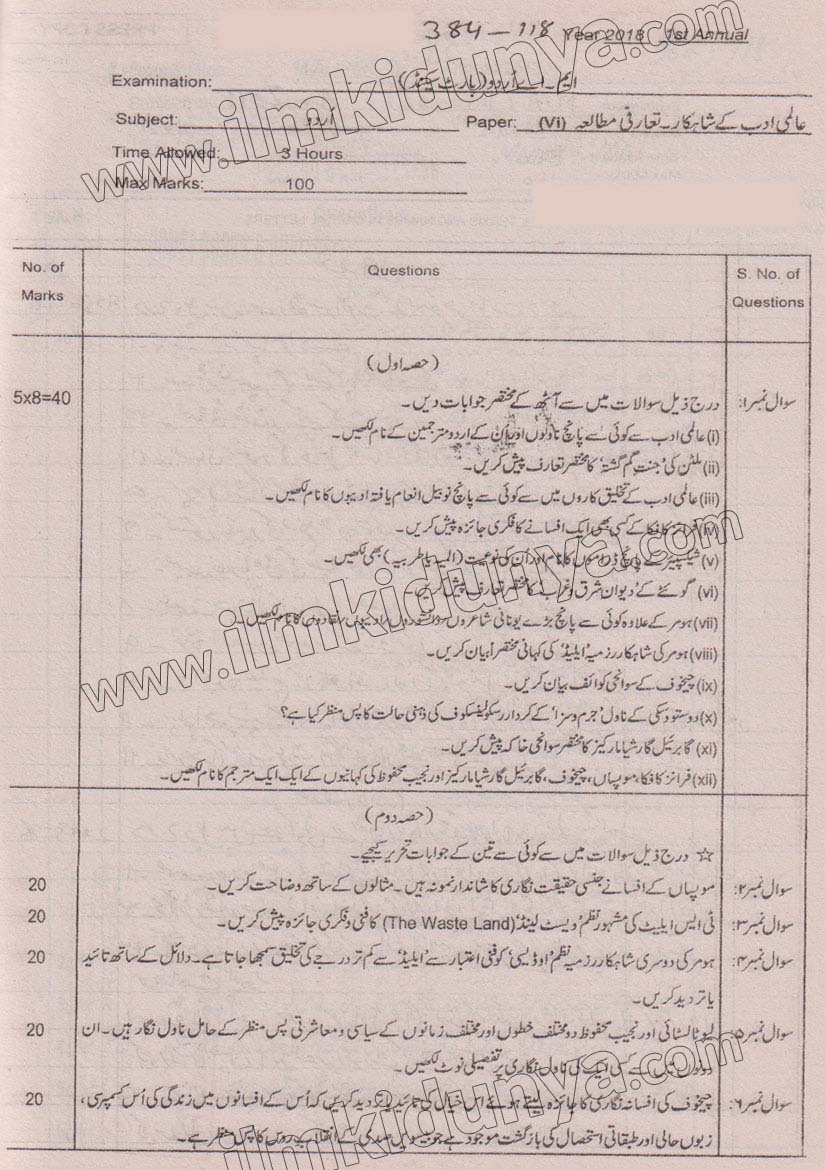 384-118 Year 2018 1st Annual
Examination: ایم۔اے اُردو (پارٹ سیکنڈ)
Subject: اُردو Paper: (Vi) عالمی ادب کے شاہکار۔ تعارفی مطالعہ
Time Allowed: 3 Hours
Max Marks: 100
No. of Marks Questions S. No. of Questions
(حصہ اول)
سوال نمبر۱: درج ذیل سوالات میں سے آٹھ کے مختصر جوابات دیں۔ 5x8=40
(i) عالمی ادب سے کوئی سے پانچ ناولوں اور اُن کے اردو مترجمین کے نام لکھیں۔
(ii) ملٹن کی 'جنتِ گم گشتہ' کا مختصر تعارف پیش کریں۔
(iii) عالمی ادب کے تخلیق کاروں میں سے کوئی سے پانچ نوبیل انعام یافتہ ادیبوں کا نام لکھیں۔
(iv) فرانز کافکا کے کسی بھی ایک افسانے کا فکری جائزہ پیش کریں۔
(v) شیکسپیئر کے پانچ ڈراموں کا نام اور ان کی نوعیت (المیہ یا طربیہ) بھی لکھیں۔
(vi) گوئٹے کے 'دیوان شرق و غرب' کا مختصر تعارف پیش کریں۔
(vii) ہومر کے علاوہ کوئی سے پانچ بڑے یونانی شاعروں، دانشوروں، ادیبوں، نقادوں کا نام لکھیں۔
(viii) ہومر کی شاہکار رزمیہ 'ایلیڈ' کی کہانی مختصراً بیان کریں۔
(ix) چیخوف کے سوانحی کوائف بیان کریں۔
(x) دوستووسکی کے ناول 'جرم و سزا' کے کردار رسکولینسکوف کی ذہنی حالت کا پس منظر کیا ہے؟
(xi) گابرئیل گارشیا مارکیز کا مختصر سوانحی خاکہ پیش کریں۔
(xii) فرانز کافکا، موپساں، چیخوف، گابرئیل گارشیا مارکیز اور نجیب محفوظ کی کہانیوں کے ایک ایک مترجم کا نام لکھیں۔
(حصہ دوم)
☆ درج ذیل سوالات میں سے کوئی سے تین کے جوابات تحریر کیجیے۔
سوال نمبر۲: موپساں کے افسانے جنسی حقیقت نگاری کا شاندار نمونہ ہیں۔ مثالوں کے ساتھ وضاحت کریں۔ 20
سوال نمبر۳: ٹی ایس ایلیٹ کی مشہور نظم 'ویسٹ لینڈ' (The Waste Land) کا فنی و فکری جائزہ پیش کریں۔ 20
سوال نمبر۴: ہومر کی دوسری شاہکار رزمیہ نظم 'اوڈیسی' کو فنی اعتبار سے 'ایلیڈ' سے کم تر درجے کی تخلیق سمجھا جاتا ہے۔ دلائل کے ساتھ تائید 20
یا تردید کریں۔
سوال نمبر۵: لیو ٹالسٹائی اور نجیب محفوظ دو مختلف خطوں اور مختلف زمانوں کے سیاسی و معاشرتی پس منظر کے حامل ناول نگار ہیں۔ ان 20
دونوں میں سے کسی ایک کی ناول نگاری پر تفصیلی نوٹ لکھیں۔
سوال نمبر۶: چیخوف کی افسانہ نگاری کا جائزہ لیتے ہوئے اس خیال کی تائید یا تردید کریں کہ اُس کے افسانوں میں زندگی کی اُس کسمپرسی، 20
زبوں حالی اور طبقاتی استحصال کی بازگشت موجود ہے جو بیسویں صدی کے انقلابِ روس کا پس منظر ہے۔
www.ilmkidunya.com
www.ilmkidunya.com
www.ilmkidunya.com